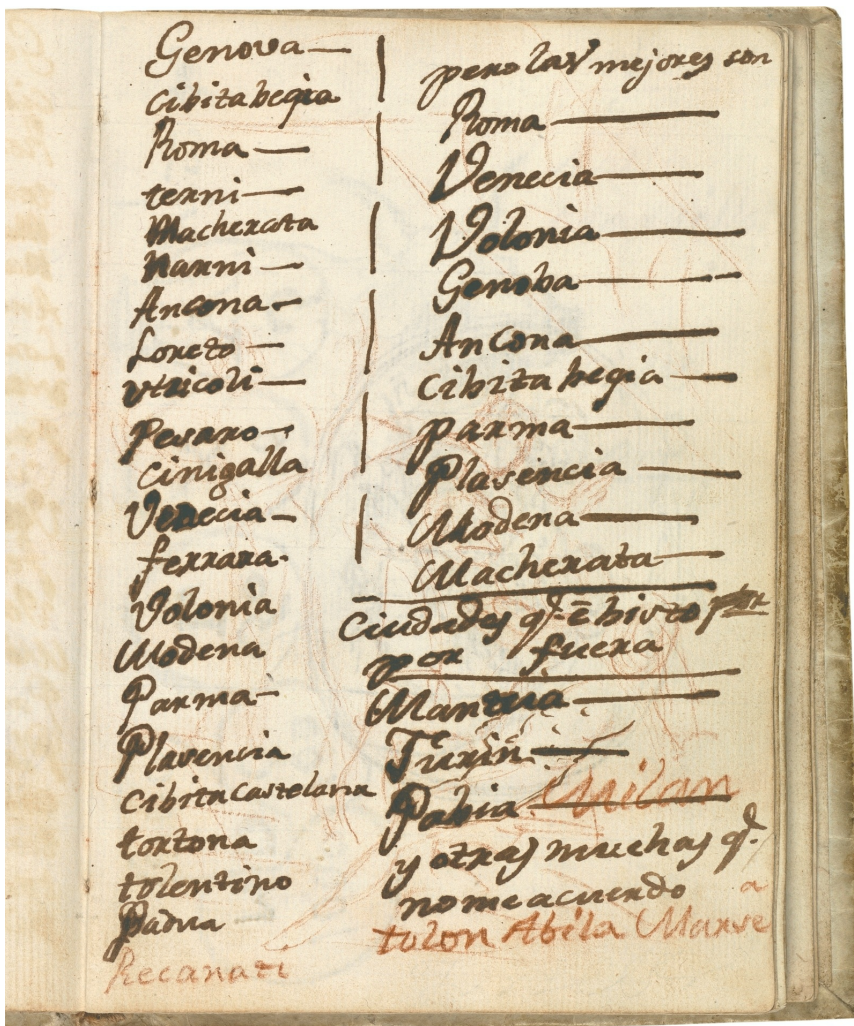 Genova
Cibitabegia
Roma
terni
Macherata
Narni
Ancona
Loreto
Utricoli
Pesaro
Cinigalla
Venecia
ferrara
Volonia
Modena
Parma
Plasencia
Cibita Castelana
tortona
tolentino
Padua
Recanati
pero las mejores son
Roma
Venecia
Volonia
Genoba
Ancona
Cibita begia
parma
Plasencia
Modena
Macherata
Ciudades q.e ē bisto por
por fuera
Mantua
Turin
Pabia Milan
y otras muchas q.e
no me acuerdo
tolon Abila Marse
a